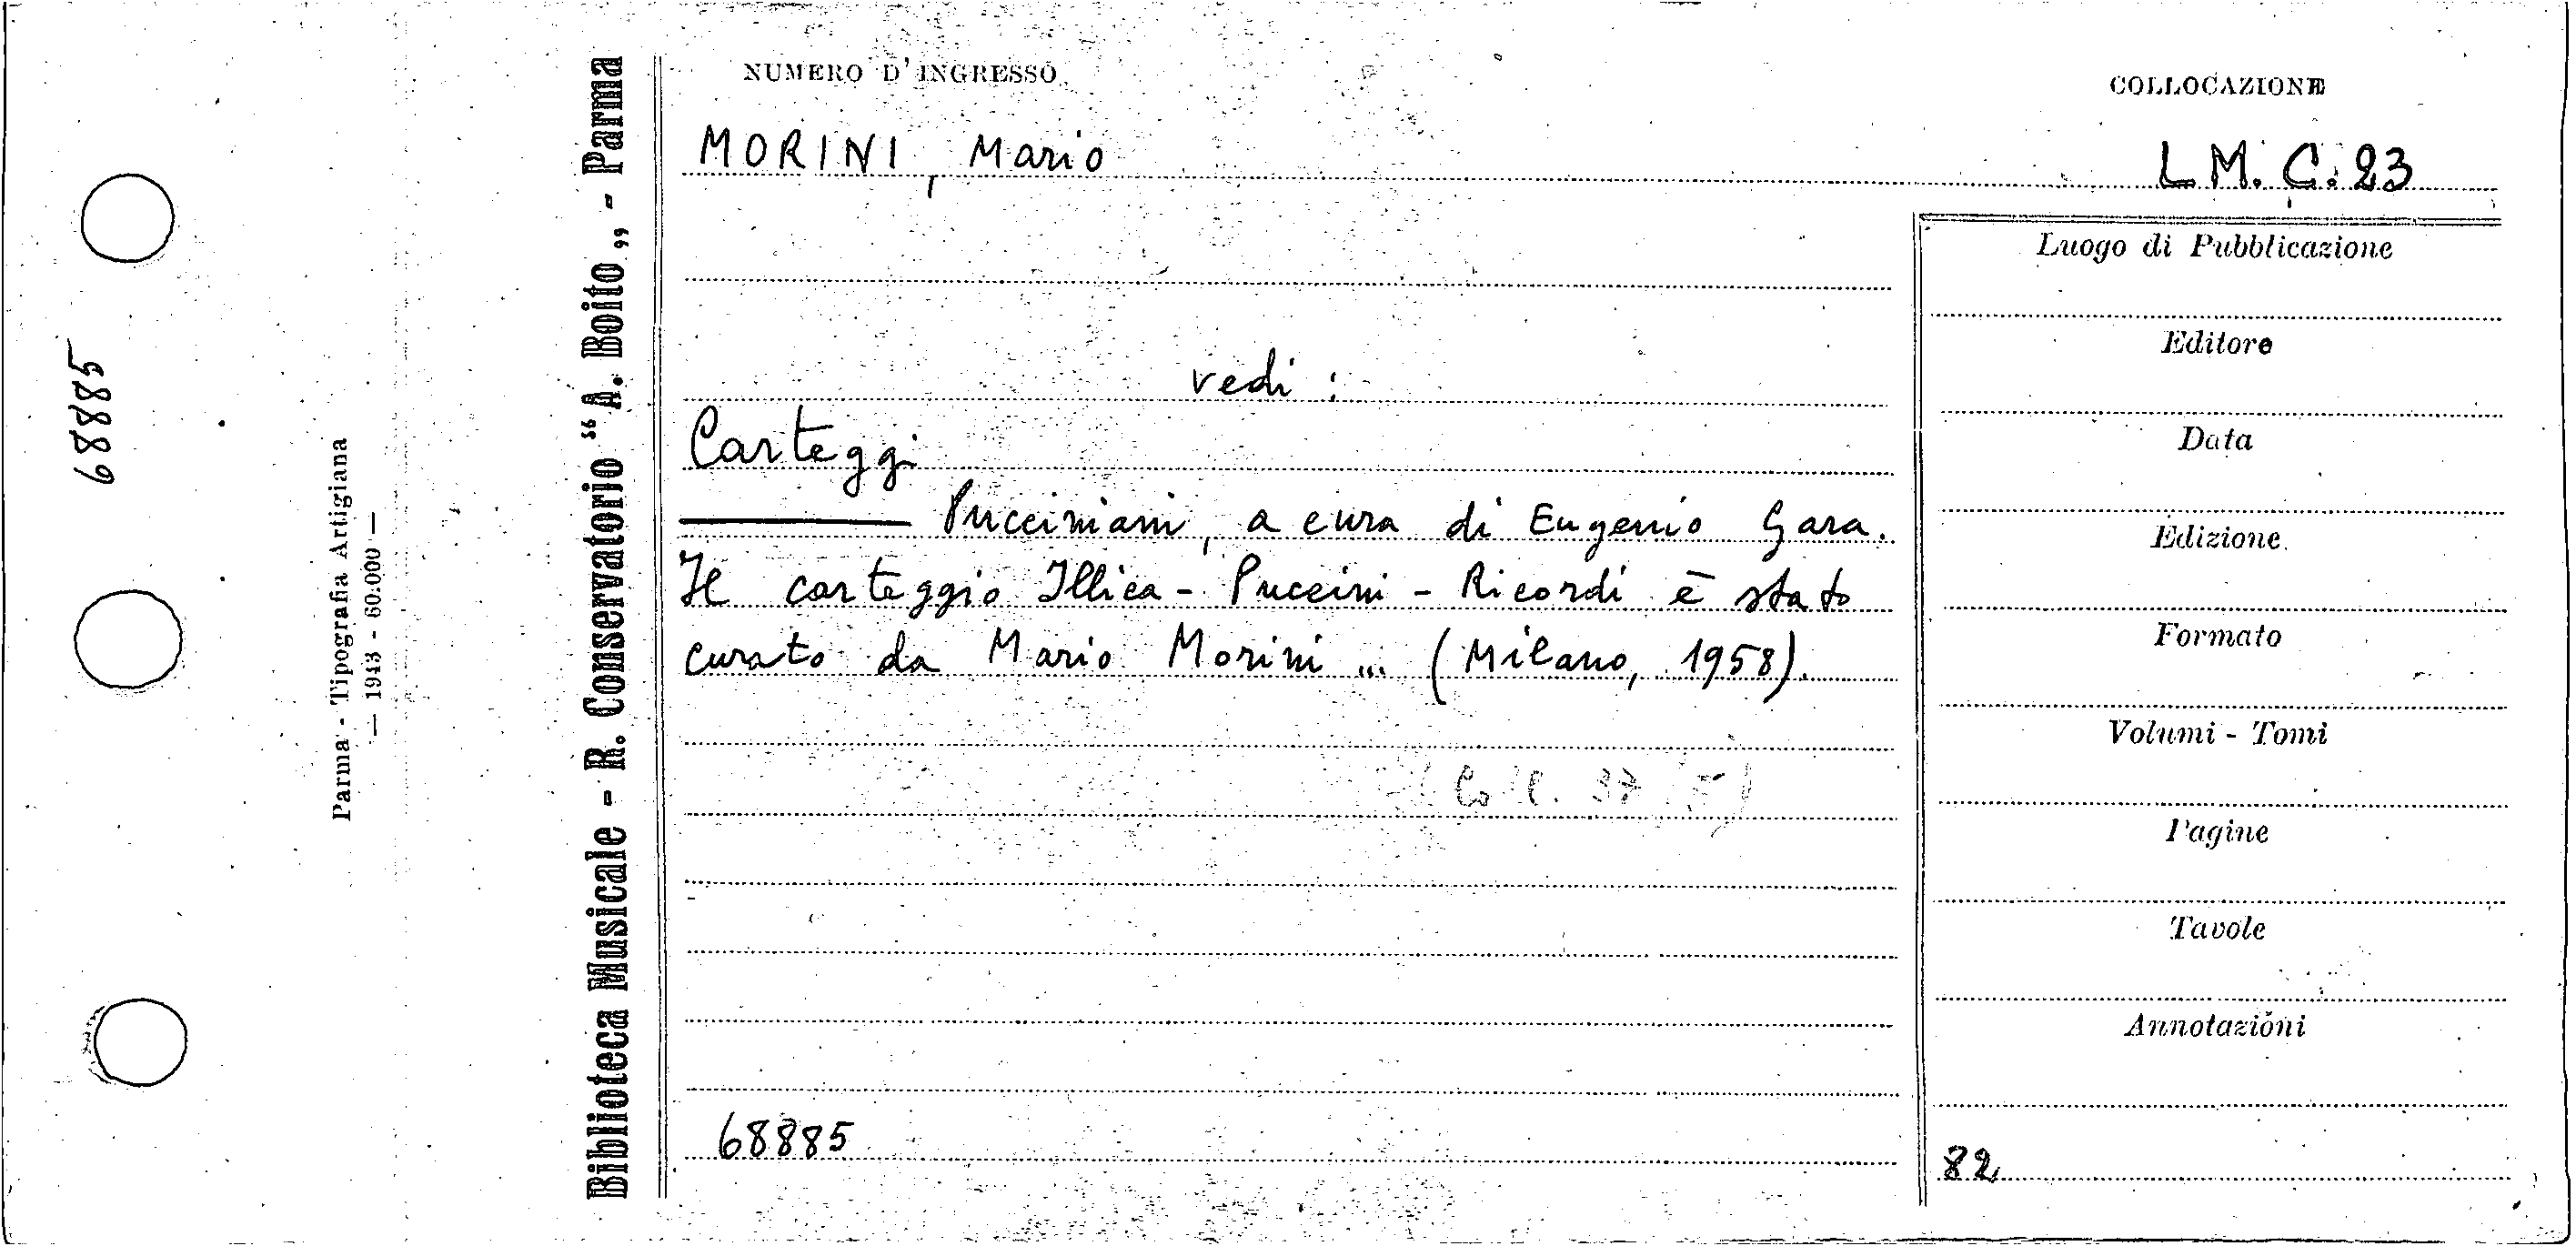 68885
Parma - Tipografia Artigiana
— 1943 - 60.000 —
Biblioteca Musicale - R. Conservatorio "A. Boito„ - Parma
NUMERO D'INGRESSO
COLLOCAZIONE
MORINI, Mario
L M. C. 23
vedi:
Carteggi
——— Pucciniani, a cura di Eugenio Gara.
Il carteggio Illica - Puccini - Ricordi è stato
curato da Mario Morini ... (Milano, 1958).
68885
Luogo di Pubblicazione
Editore
Data
Edizione
Formato
Volumi - Tomi
Pagine
Tavole
Annotazioni
82